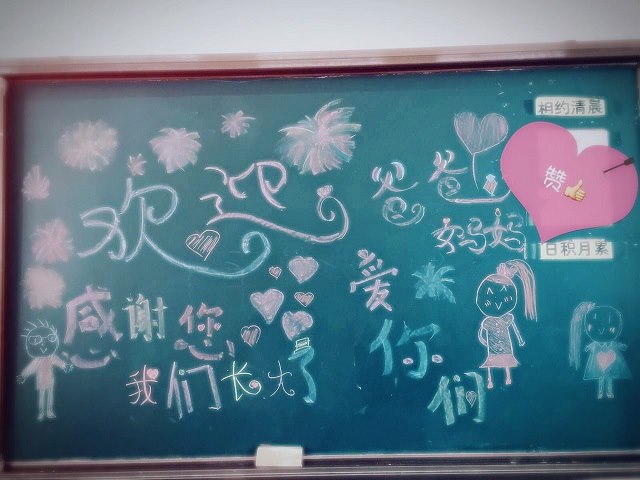 相约清晨
欢迎
爸爸
妈妈
赞
日积月累
感谢您!
我们长大了
爱
你们